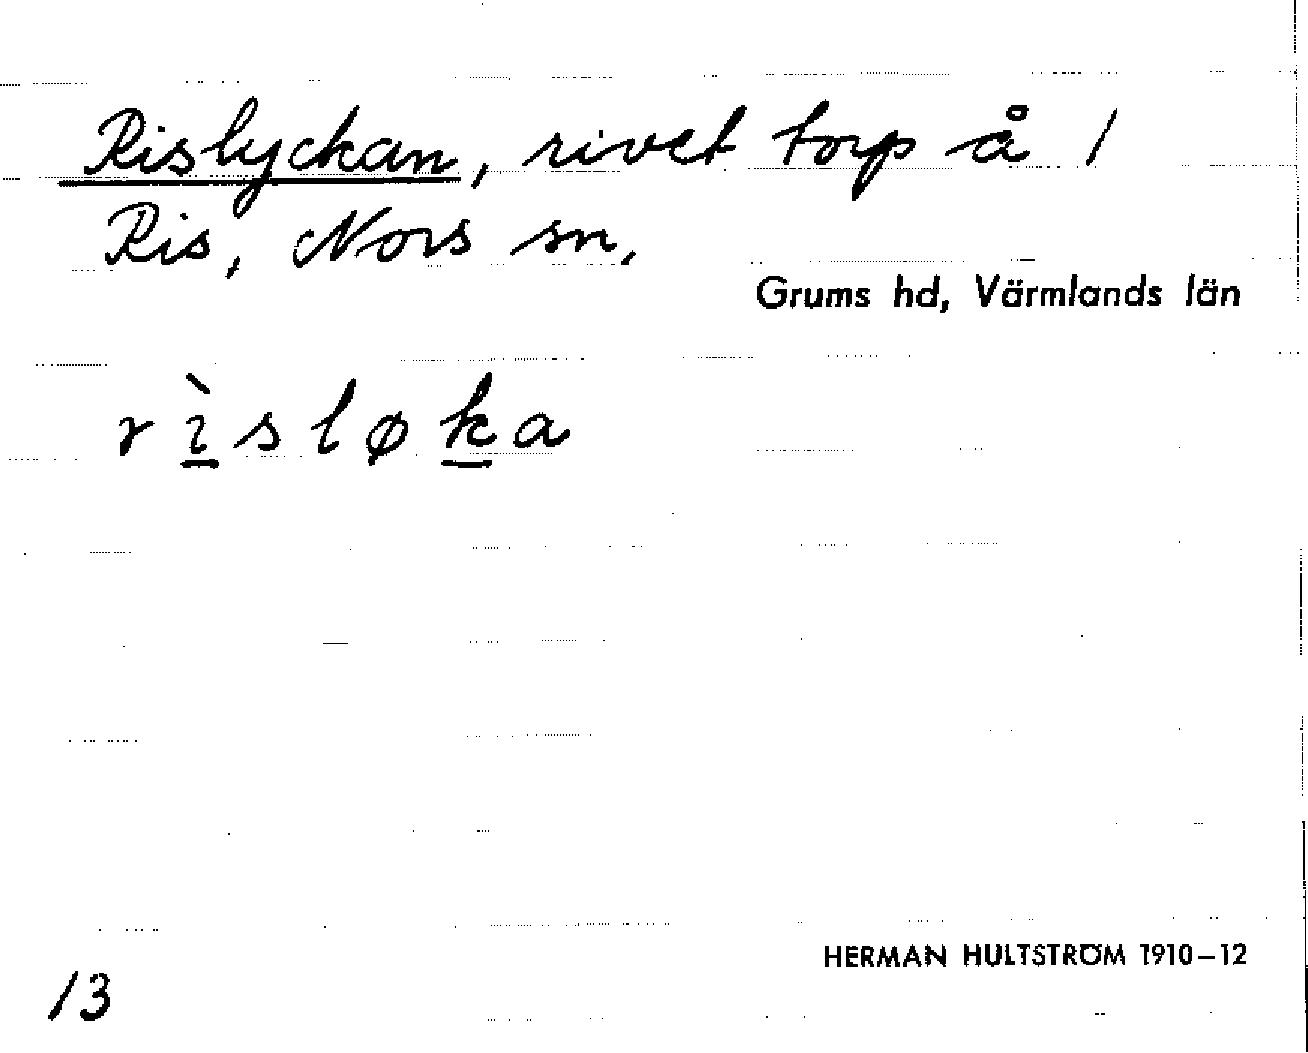 Rislyckan, rivet torp å 1
Ris, Nors sn,
Grums hd, Värmlands län
rı̳̀sløk̲a
HERMAN HULTSTRÖM 1910–12
13